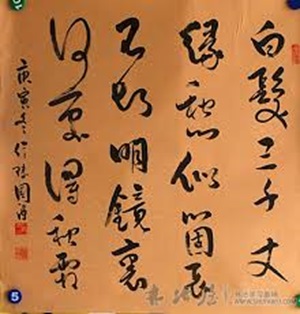 白髮三千丈
緣愁似箇長
不知明鏡裏
何處得秋霜
庚寅冬
5